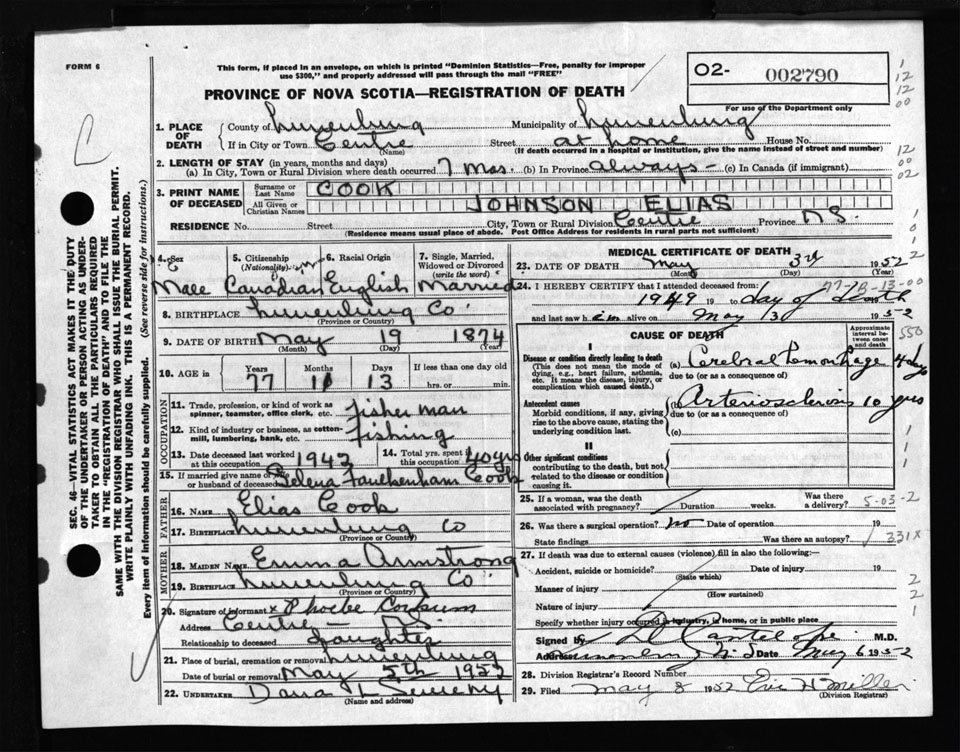 FORM 6
This form, if placed in an envelope, on which is printed "Dominion Statistics—Free, penalty for improper
use $300," and properly addressed will pass through the mail "FREE"
O2- 002790
For use of the Department only
PROVINCE OF NOVA SCOTIA—REGISTRATION OF DEATH
1. PLACE OF DEATH
County of Lunenburg Municipality of Lunenburg
If in City or Town Centre (Name) Street at home House No.
(If death occurred in a hospital or institution, give the name instead of street and number)
2. LENGTH OF STAY (in years, months and days)
(a) In City, Town or Rural Division where death occurred 7 mos. (b) In Province always (c) In Canada (if immigrant)
3. PRINT NAME OF DECEASED
Surname or Last Name COOK
All Given or Christian Names JOHNSON ELIAS
RESIDENCE No. Street City, Town or Rural Division Centre Province N.S.
(Residence means usual place of abode. Post Office Address for residents in rural parts not sufficient)
4. Sex Male
5. Citizenship (Nationality) Canadian
6. Racial Origin English
7. Single, Married, Widowed or Divorced (write the word) Married
8. BIRTHPLACE Lunenburg Co.
(Province or Country)
9. DATE OF BIRTH May 19 1874
(Month) (Day) (Year)
10. AGE in Years 77 Months 11 Days 13 If less than one day old hrs. or min.
OCCUPATION
11. Trade, profession, or kind of work as spinner, teamster, office clerk, etc. fisherman
12. Kind of industry or business, as cotton-mill, lumbering, bank, etc. fishing
13. Date deceased last worked at this occupation 1942
14. Total yrs. spent in this occupation 40 yrs
15. If married give name of wife or husband of deceased Selena Faulkenham Cook
FATHER
16. Name Elias Cook
17. Birthplace Lunenburg Co
(Province or Country)
MOTHER
18. MAIDEN NAME Emma Armstrong
19. Birthplace Lunenburg Co.
(Province or Country)
20. Signature of informant x Phoebe Corkum
Address Centre — N.S.
Relationship to deceased Daughter
21. Place of burial, cremation or removal Lunenburg
Date of burial or removal May 5th 1952
22. UNDERTAKER Dana L Sweeny
(Name and address)
MEDICAL CERTIFICATE OF DEATH
23. DATE OF DEATH May 3rd 1952
(Month) (Day) (Year)
24. I HEREBY CERTIFY that I attended deceased from:
1949 19 to day of death 77-1B-13-00
and last saw h im alive on May 13 1952
CAUSE OF DEATH
Approximate interval between onset and death
550
I
Disease or condition directly leading to death
(This does not mean the mode of dying, e.g., heart failure, asthenia, etc. It means the disease, injury, or complication which caused death.)
(a) Cerebral Hemorrhage 4 days
due to (or as a consequence of)
Antecedent causes
Morbid conditions, if any, giving rise to the above cause, stating the underlying condition last.
Arteriosclerosis 10 years
due to (or as a consequence of)
(c)
II
Other significant conditions
contributing to the death, but not related to the disease or condition causing it.
25. If a woman, was the death associated with pregnancy? Duration weeks. Was there a delivery? 5-03-2
26. Was there surgical operation? no Date of operation 19
State findings Was there an autopsy? 331X
27. If death was due to external causes (violence) fill in also the following:—
Accident, suicide or homicide? Date of injury 19
(State which)
Manner of injury
(How sustained)
Nature of injury
Specify whether injury occurred in industry, in home, or in public place
Signed by Cantelope M.D.
Address Lunenburg N.S Date May 6 1952
28. Division Registrar's Record Number
29. Filed May 8 1952
(Division Registrar)
SEC. 46—VITAL STATISTICS ACT MAKES IT THE DUTY
OF THE UNDERTAKER OR PERSON ACTING AS UNDER-
TAKER TO OBTAIN ALL THE PARTICULARS REQUIRED
IN THE "REGISTRATION OF DEATH" AND TO FILE THE
SAME WITH THE DIVISION REGISTRAR WHO SHALL ISSUE THE BURIAL PERMIT.
WRITE PLAINLY WITH UNFADING INK. THIS IS A PERMANENT RECORD.
Every item of information should be carefully supplied. (See reverse side for instructions.)